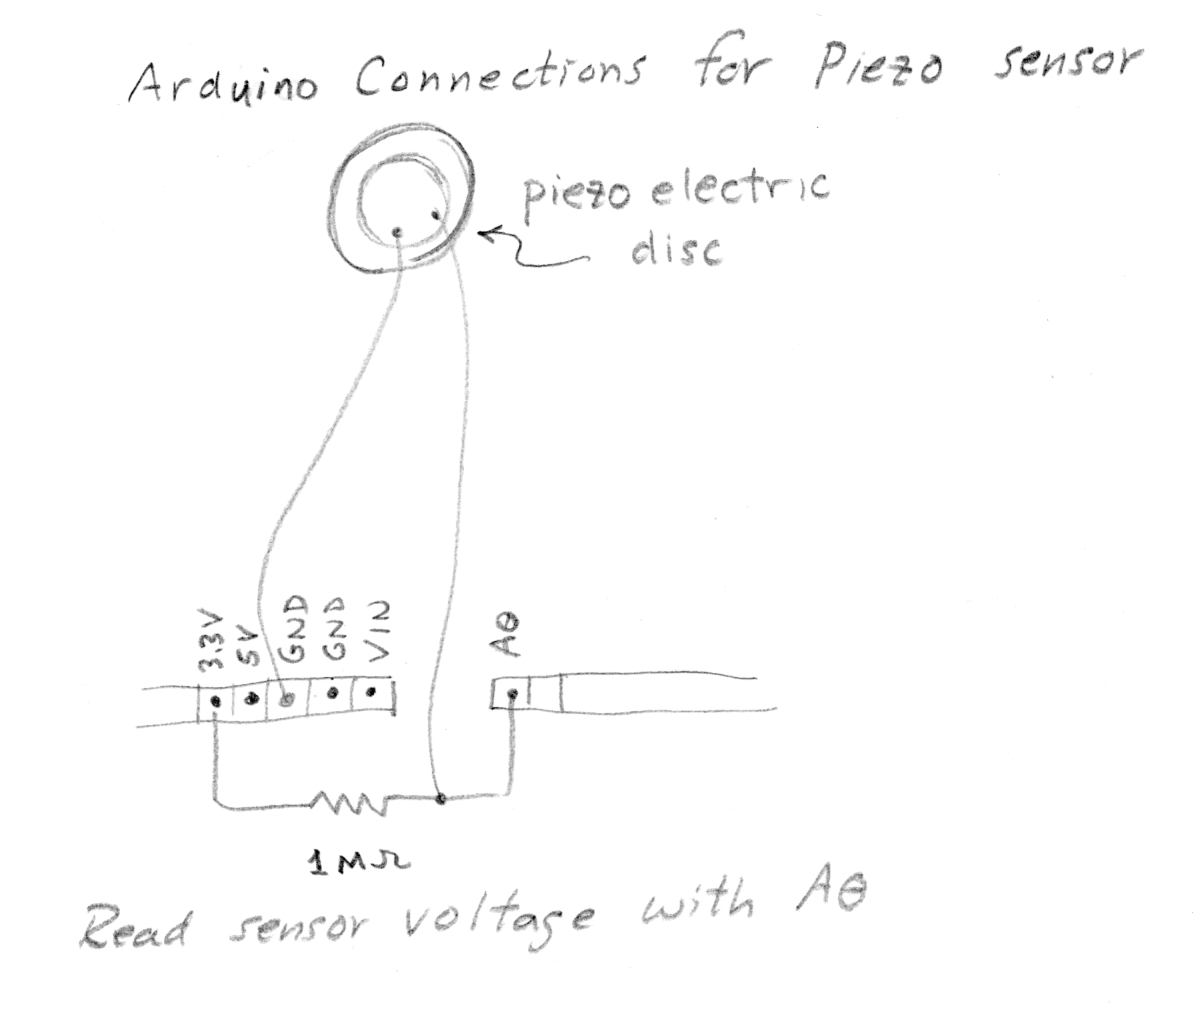 Arduino Connections for Piezo sensor
piezo electric
disc
3.3V
5V
GND
GND
VIN
A0
1MΩ
Read sensor voltage with A0